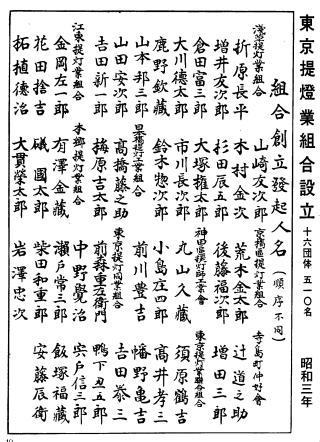 東京提燈業組合設立 十六団体 五一〇名 昭和三年
組合創立發起人名(順序不同)
浅草提灯業組合 山崎友次郎 京橋區提灯業組合 寺島町仲好會
折原長平 木村金次 荒木金太郎 辻道之助
増井友次郎 杉田辰五郎 後藤福次郎 増田三郎
倉田富三郎 大塚権太郎 神田區提灯師工會 東京提灯聯合組合
大川德太郎 市川長次郎 丸山久藏 須原鶴吉
鹿野欽藏 鈴木惣次郎 小島庄四郎 高井孝三
山本邦三郎 提灯業組合 前川豊吉 幡野亀吉
山田安次郎 高橋藤之助 東京提灯同業組合 吉田恭三
吉田新一郎 梅原吉太郎 前森重左衛門 鴨下丑五郎
江東提灯業組合 本郷提灯業組合 中野覺治 宍戸信三郎
金岡左一郎 有澤金藏 瀬戸常三郎 飯塚福藏
花田捨吉 礒國太郎 柴田和重郎 安藤辰衛
柘植德治 大貫榮太郎 岩澤忠次